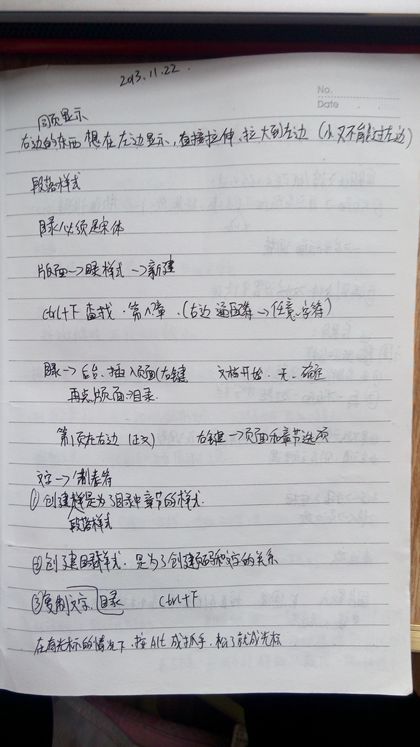 2013.11.22
No.
Date
同页显示
右边的东西想在左边显示,直接拉伸、拉大到左边(小 又不能过左边)
段落样式
目录必须是宋体
版面→目录样式→新建
ctrl+F 查找·第^?章·(右边通配符→任意字符)
目录→后台、插入页面(右键 文档开始、无、确定
再点版面:目录.
第1页在右边(正文) 右键→页面和章节选项
文字→制表符
①创建样是为了目录中章节的样式.
段落样式
②创建目录样式.是为了创建页码和文字的关系
③复制文字.目录 Ctrl+F
在有光标的情况下,按Alt成抓手,松了就成光标